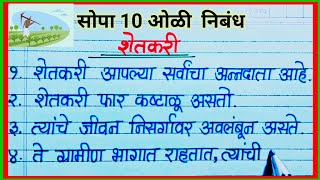 सोपा 10 ओळी निबंध
शेतकरी
१. शेतकरी आपल्या सर्वांचा अन्नदाता आहे.
२. शेतकरी फार कष्टाळू असतो.
३. त्यांचे जीवन निसर्गावर अवलंबून असते.
४. ते ग्रामीण भागात राहतात, त्यांची